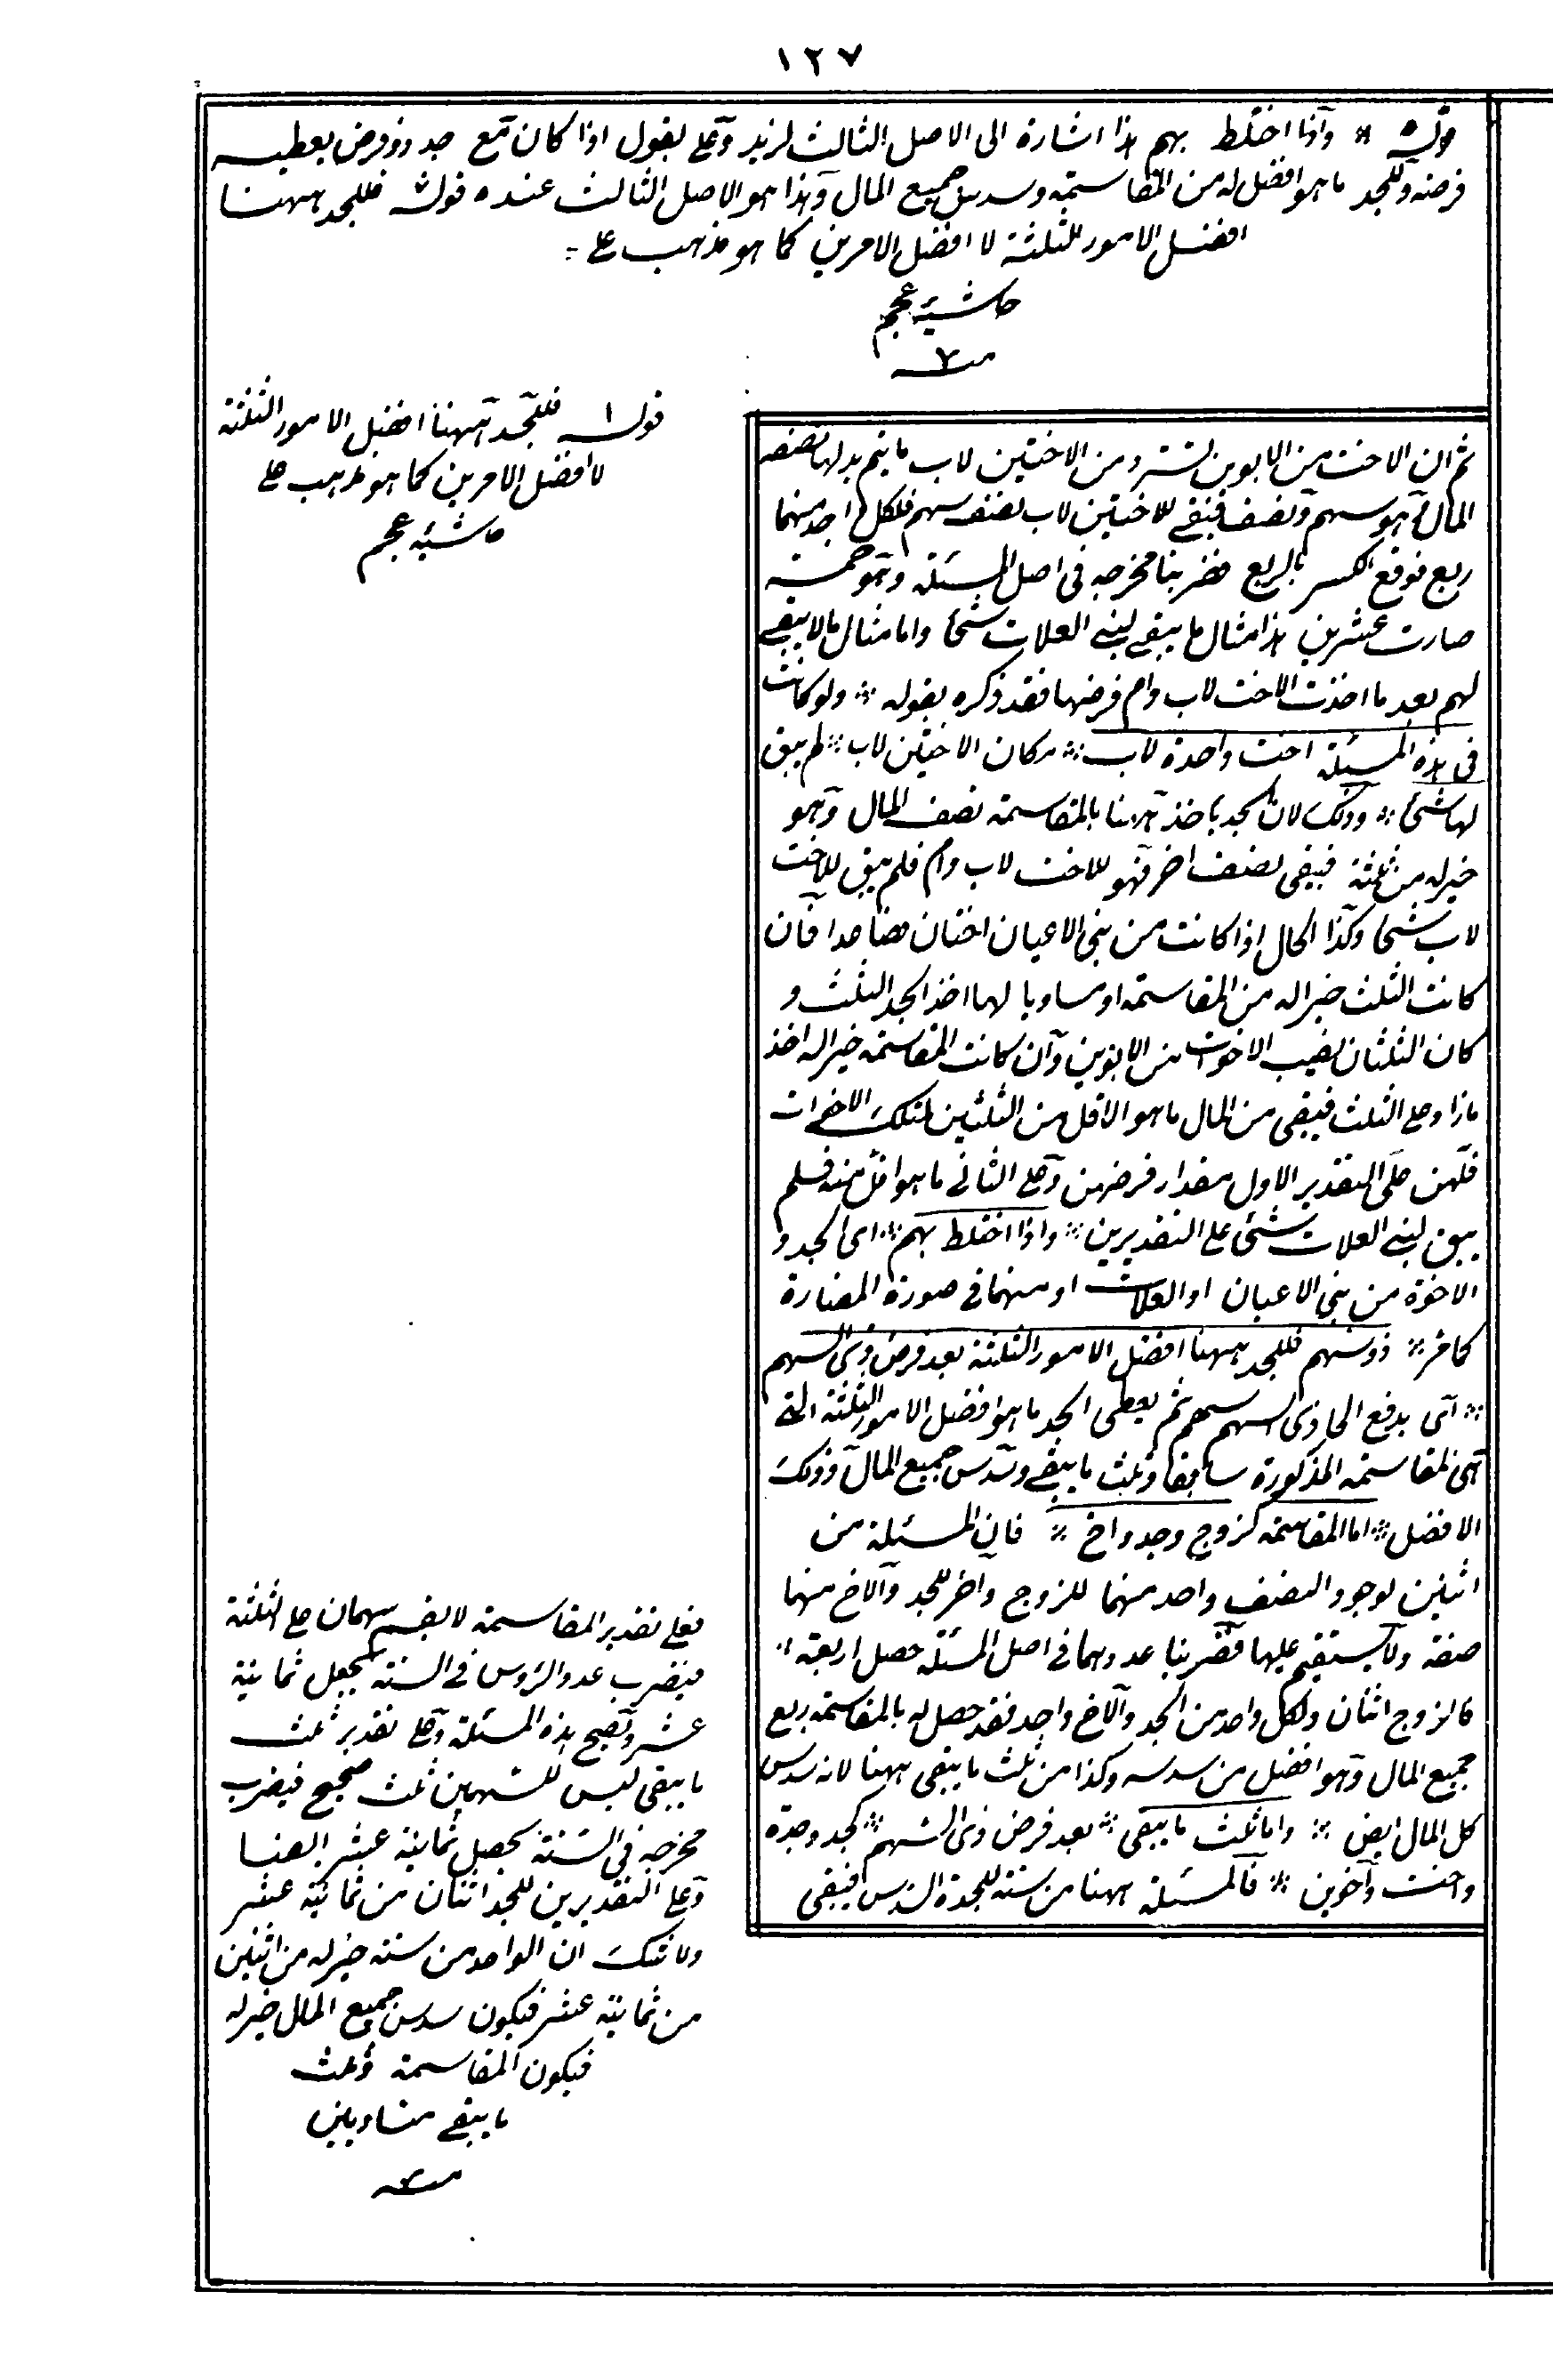 ١٢٧
قوله * وآذا اختلط بهم هذا اشارة الى الاصل الثالث لزيد وعلى يقول اذا كان مع جد ذو فرض يعطيه
فرضه وللجد ما هو افضل له من المقاسمة وسدس جميع المال وهذا هو الاصل الثالث عنده قوله فللجد ههنا
افضل الامور الثلثة لا افضل الامرين كما هو مذهب على
حاشيه عجم
قوله فللجد ههنا افضل الامور الثلثة
لا افضل الامرين كما هو مذهب على
حاشيه عجم
ثم ان الاخت من الابوين تسترد من الاختين لاب ما يتم به لها نصف
المال وهو سهم ونصف فتبقى للاختين لاب نصف سهم فلكل واحد منهما
ربع فوقع الكسر بالربع فضربنا مخرجه فى اصل المسئلة وهو خمسة
صارت عشرين هذا مثال ما يبقى لبنى العلات شئ واما مثال ما لا يبقى
لهم بعد ما اخذت الاخت لاب وام فرضها فقد ذكره بقوله * ولو كانت
فى هذه المسئلة اخت واحدة لاب * مكان الاختين لاب * لم يبق
لها شئ * وذلك لان الجد ياخذ ههنا بالمقاسمة نصف المال وهو
خير له من ثلثه فيبقى نصف اخر فهو للاخت لاب وام فلم يبق للاخت
لاب شئ وكذا الحال اذا كانت من بنى الاعيان اختان فصاعدا فان
كانت الثلث خيرا له من المقاسمة او مساويا لها اخذ الجد الثلث و
كان الثلثان نصيب الاخوات من الابوين وآن كانت المقاسمة خيرا له اخذ
ما زاد على الثلث فيبقى من المال ما هو الاقل من الثلثين لتلك الاخوات
فلهن على التقدير الاول مقدار فرضهن وعلى الثانى ما هو اقل منه فلم
يبق لبنى العلات شئ على التقديرين * واذا اختلط بهم * اى الجد و
الاخوة من بنى الاعيان او العلات او منهما فى صورة المضارة
كما مر * ذو سهم فللجد ههنا افضل الامور الثلثة بعد فرض ذى السهم
* آى يدفع الى ذى السهم سهمه ثم يعطى الجد ما هو افضل الامور الثلثة التى
هى المقاسمة المذكورة سابقا وثلث ما يبقى وسدس جميع المال وذلك
الافضل * اما المقاسمة كزوج وجد واخ * فان المسئلة من
اثنين لوجود النصف واحد منهما للزوج وآخر للجد والاخ منهما
صفة ولا يستقيم عليهما فضربنا عددهما فى اصل المسئلة حصل اربعة
فالزوج اثنان ولكل واحد من الجد والاخ واحد فقد حصل له بالمقاسمة ربع
جميع المال وهو افضل من سدسه وكذا من ثلث ما يبقى ههنا لانه سدس
كل المال ايض * واما ثلث ما يبقى * بعد فرض ذى السهم * كجد وجدة
واخت واخوين * فالمسئلة ههنا من ستة للجدة السدس فيبقى
فعلى تقدير المقاسمة لا يقسم سهمان على الثلثة
فيضرب عدد الرؤس فى الستة يحصل ثمانية
عشر وتصح هذه المسئلة وعلى تقدير ثلث
ما يبقى ليس للسهمين ثلث صحيح فيضرب
مخرجه فى الستة يحصل ثمانية عشر ايضا
وعلى التقديرين للجد اثنان من ثمانية عشر
ولا شك ان الواحد من ستة خير له من اثنين
من ثمانية عشر فيكون سدس جميع المال خير له
فيكون المقاسمة وثلث
ما يبقى متساويين